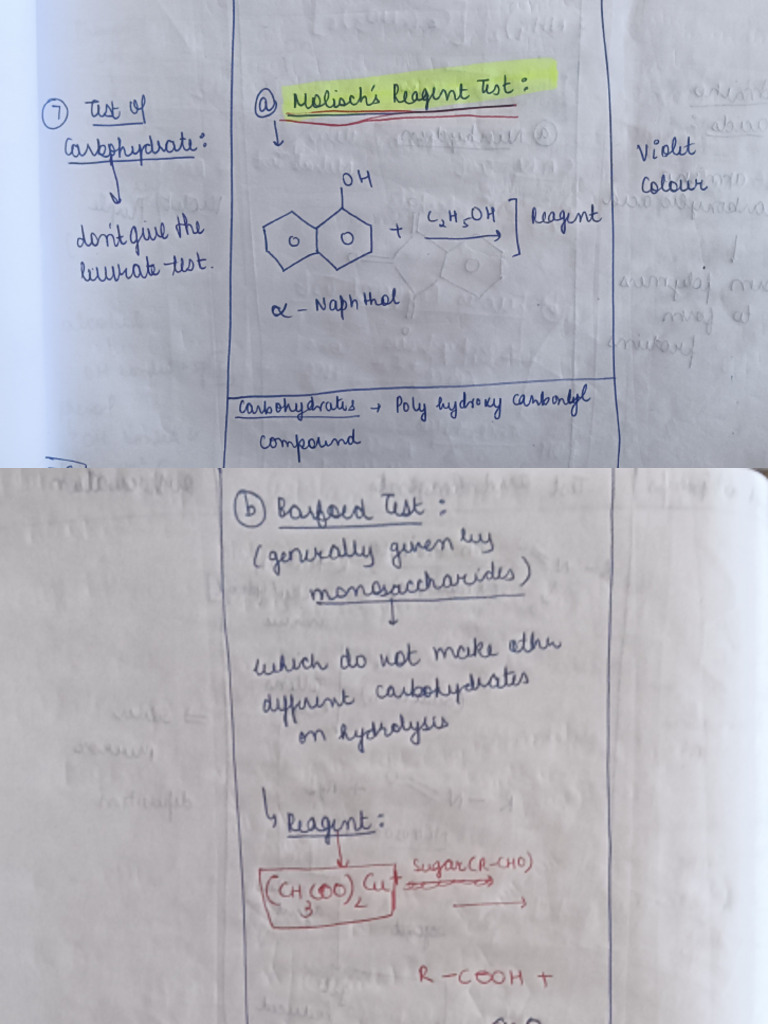 ⑦ Test of
Carbohydrate:
don't give the
biurate test.
ⓐ Molisch's Reagent Test:
OH
+ C₂H₅OH ] Reagent
α - Naphthol
Violet
Colour
Carbohydrates → Poly hydroxy carbonlyl
compound
ⓑ Barfoed Test:
(generally given by
monosaccharides)
which do not make other
diffrent carbohydrates
on hydrolysis
↳ Reagent:
(CH₃COO)₂Cu + Sugar(R-CHO)
R-COOH +